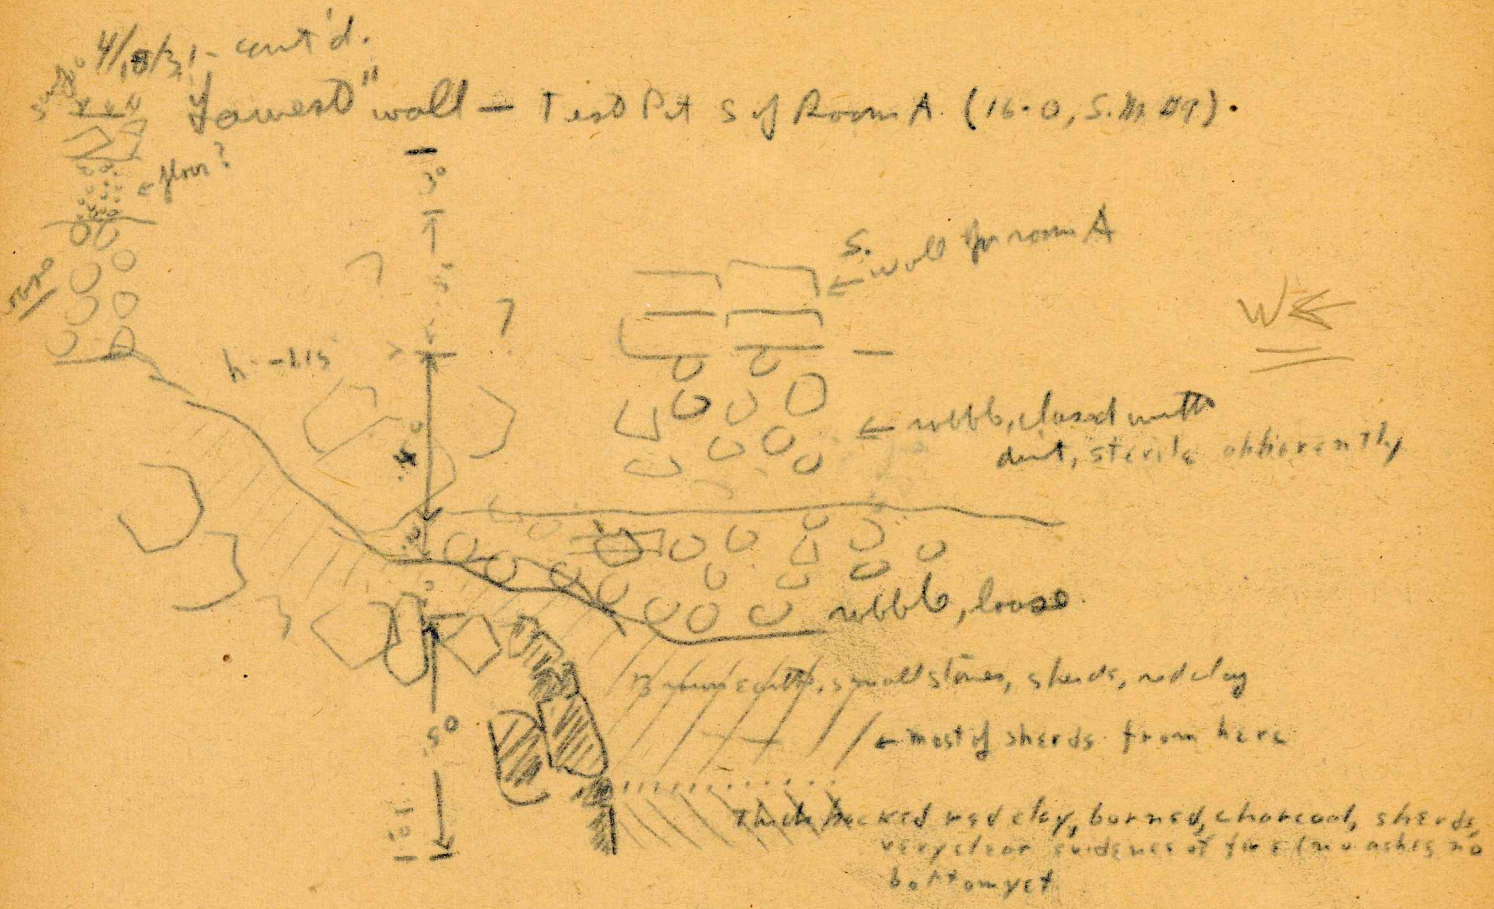 4/18/31 - cont'd.
"Lowest" wall — Test Pit S of Room A. (16.0, S.M. 49).
floor?
3°
S. wall for room A
?
5
?
W
h. -1.15
rubble, closed with
dirt, sterile apparently
rubble, loose
Brown earth, small stones, sherds, red clay
← most of sherds from here
.50
Thick packed red clay, burned, charcoal, sherds,
very clear evidence of fire (no ashes, no
bottom yet